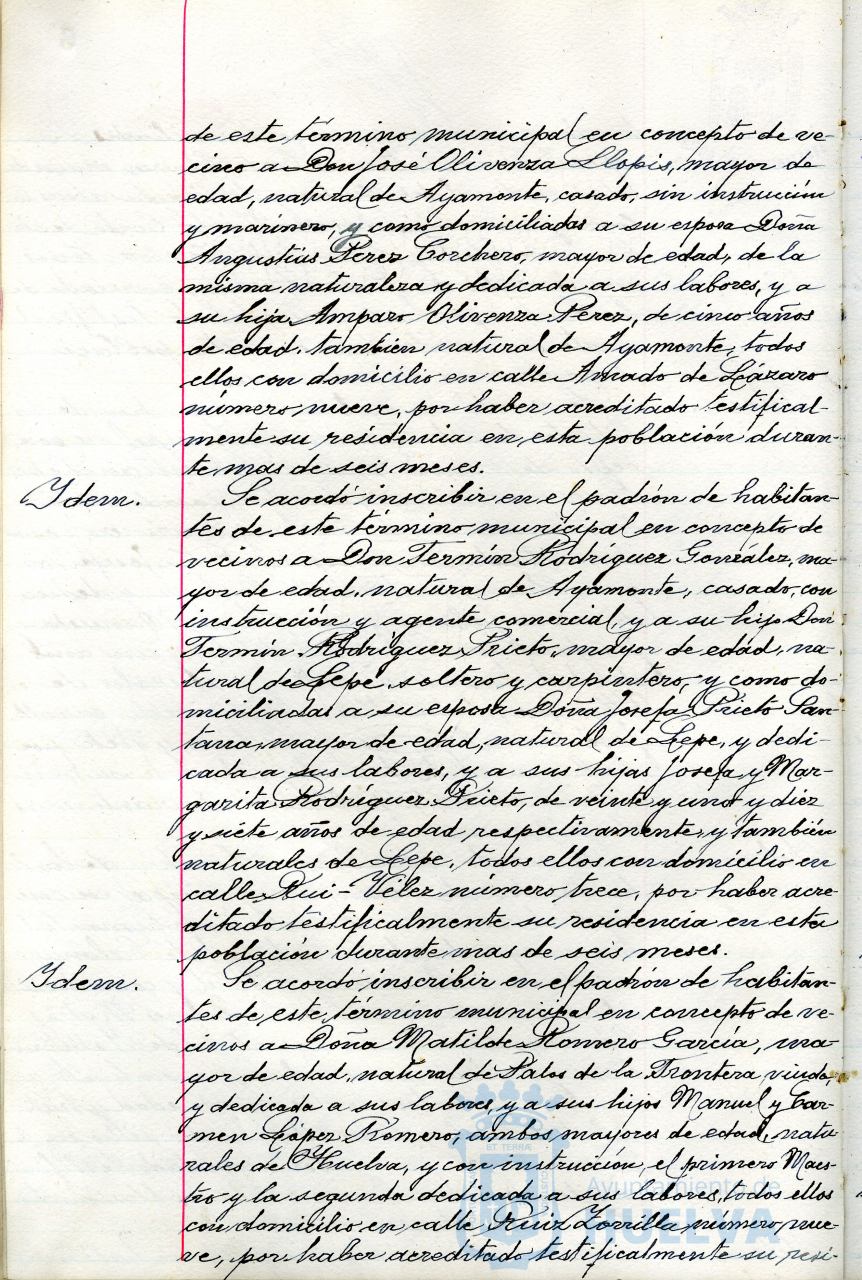 de este término municipal en concepto de ve-
cino a Don José Olivenza Llopis, mayor de
edad, natural de Ayamonte, casado, sin instrucción
y marinero, y como domiciliadas a su esposa Doña
Angustias Perez Corchero, mayor de edad, de la
misma naturaleza y dedicada a sus labores, y a
su hija Amparo Olivenza Perez, de cinco años
de edad, también natural de Ayamonte, todos
ellos con domicilio en calle Amado de Lázaro
número nueve, por haber acreditado testifical-
mente su residencia en esta población duran-
te mas de seis meses.
Ydem. Se acordó inscribir en el padrón de habitan-
tes de este término municipal en concepto de
vecinos a Don Fermín Rodríguez González, ma-
yor de edad, natural de Ayamonte, casado, con
instrucción y agente comercial, y a su hijo Don
Fermín Rodríguez Prieto, mayor de edad, na-
tural de Lepe, soltero y carpintero, y como do-
miciliadas a su esposa Doña Josefa Prieto San-
tana, mayor de edad, natural de Lepe, y dedi-
cada a sus labores, y a sus hijas Josefa y Mar-
garita Rodríguez Prieto, de veinte y una y diez
y siete años de edad respectivamente, y también
naturales de Lepe, todos ellos con domicilio en
calle Rui-Vélez número trece, por haber acre-
ditado testificalmente su residencia en esta
población durante mas de seis meses.
Ydem. Se acordó inscribir en el padrón de habitan-
tes de este término municipal en concepto de ve-
cinos a Doña Matilde Romero García, ma-
yor de edad, natural de Palos de la Frontera viuda,
y dedicada a sus labores, y a sus hijos Manuel y Car-
men López Romero, ambos mayores de edad, natu-
rales de Huelva, y con instrucción, el primero Maes-
tro y la segunda dedicada a sus labores, todos ellos
con domicilio en calle Ruiz Zorrilla número nue-
ve, por haber acreditado testificalmente su resi-
Ayuntamiento de
HUELVA